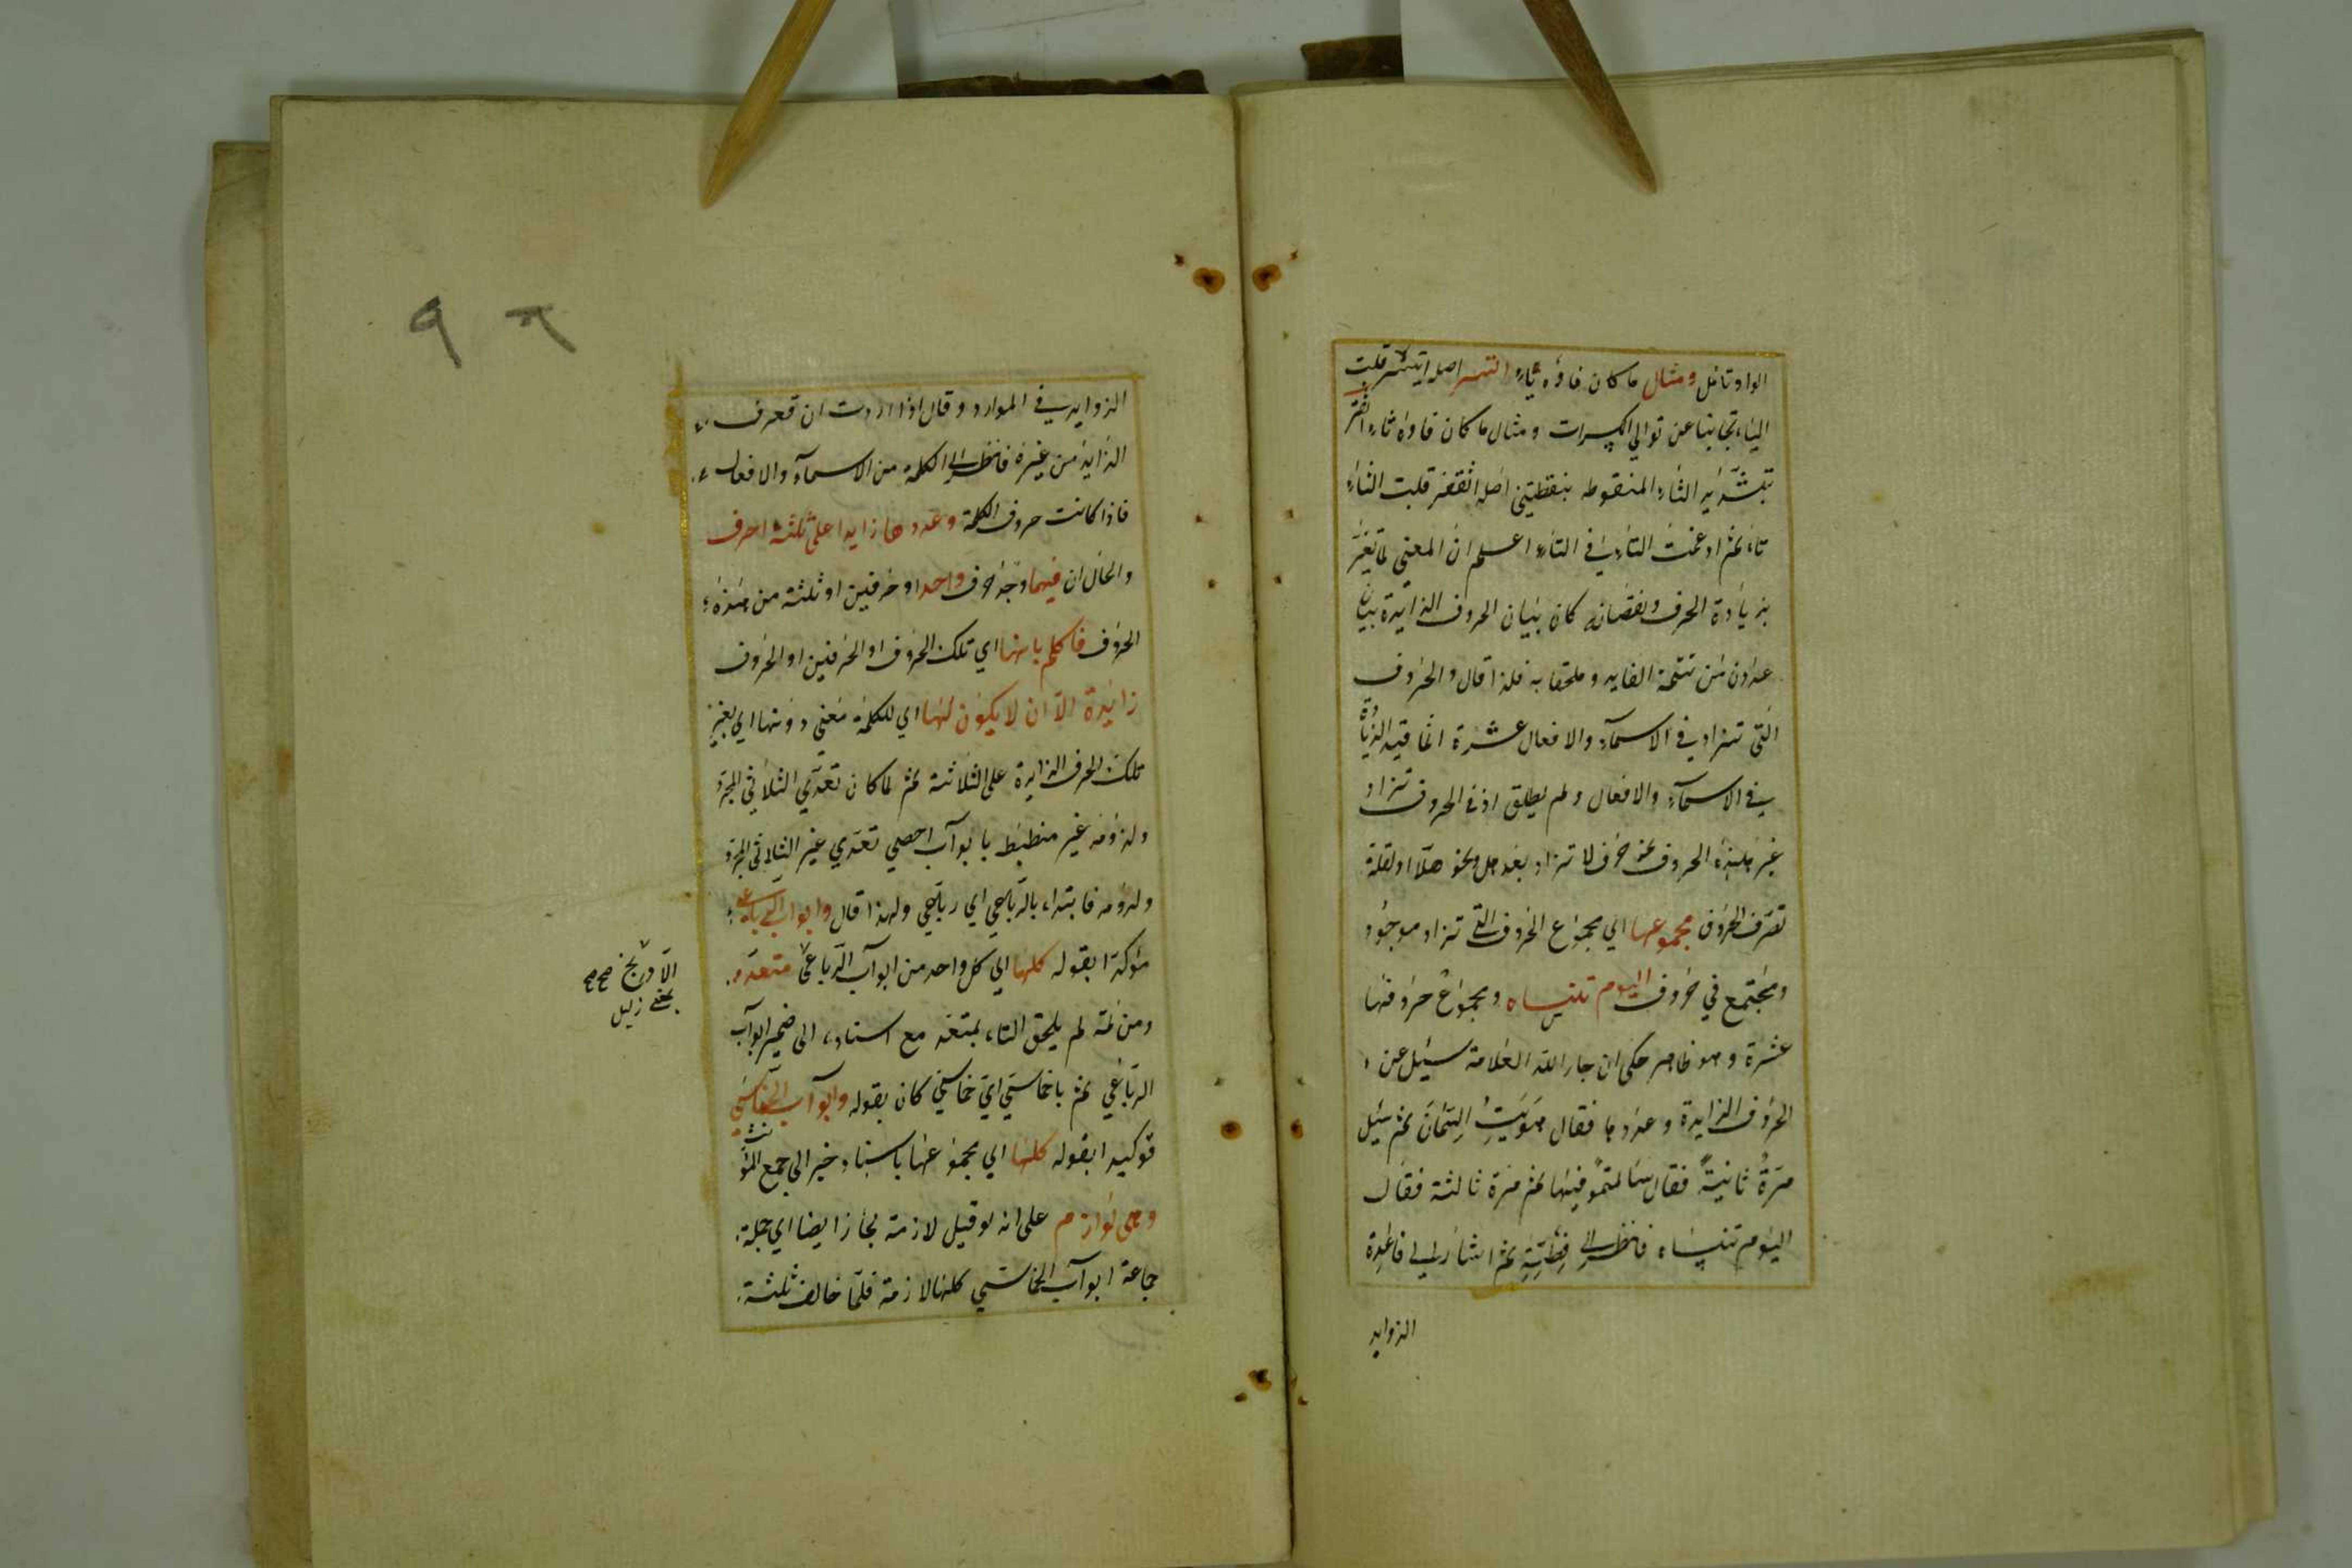 الواو تامل ومثال ما كان فاؤه ياء اتسر اصله ايتسر قلبت
الياء تجانبا عن توالي الكسرات ومثال ما كان فاؤه ثاء اتغر
بتشديد التاء المنقوطه بنقطتين اصله اثتغر قلبت الثاء
تاء ثم ادغمت التاء في التاء اعلم ان المعنى لما تغير
بزيادة الحرف ونقصانه كان بيان الحروف الزايدة بيان
عددن من تتمة الفايده وملحقا به فلذا قال والحروف
التي تزاد في الاسماء والافعال عشرة انما قيد الزيادة
في الاسماء والافعال ولم يطلق اذ في الحروف تزاد
غير هذه الحروف نحو حرف لا تزاد بعد هل ونحو هلا او لقلة
تصرف الحروف مجموعها اي مجموع الحروف التي تزاد موجود
ومجتمع في حروف اليوم تنساه ومجموع حروفها
عشرة وهو ظاهر حكى ان جار الله العلامة سئل عن
الحروف الزايدة وعددها فقال هويت السمان ثم سئل
مرة ثانية فقال سالتمونيها ثم مرة ثالثة فقال
اليوم تنساه فانظر الى فطنته ثم اشار الى قاعدة
الزوايد
الزوايد في الموارد وقال اذا اردت ان تعرف
الزايد من غيره فانظر الى الكلمة من الاسماء والافعال
فاذا كانت حروف الكلمة وعددها زايدا على ثلثة احرف
والحال ان فيها وجد حرف واحد او حرفين او ثلثة من هذه
الحروف فاحكم بانها اي تلك الحروف او الحرفين او الحروف
زائدة الا ان لا يكون لها اي للكلمة معنى دونها اي بغير
تلك الحرف الزايدة على الثلاثة ثم لما كان تعدي الثلاثي المجرد
ولزومه غير منضبط بابواب احصى تعدي غير الثلاثي المجرد
ولزومه فابتداء بالرباعي اي رباعي ولهذا قال وابواب الرباعي
مؤكدا بقوله كلها اي كل واحد من ابواب الرباعي متعد
ومن ثمة لم يلحق التاء بمتعد مع اسناده الى ضمير ابواب
الرباعي ثم بالخماسي اي خماسي كان بقوله وابواب الخماسي
توكيدا بقوله كلها اي مجموعها باسناد خبر الى جمع المؤنث
وهي لوازم على انه لو قيل لازمة لجاز ايضا اي جملة
جماعة ابواب الخماسي كلها لازمة فلما خالف ثلثة